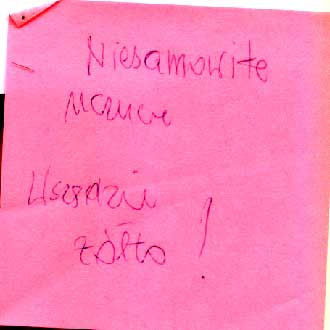 Niesamowite
Wszędzie
żółto !